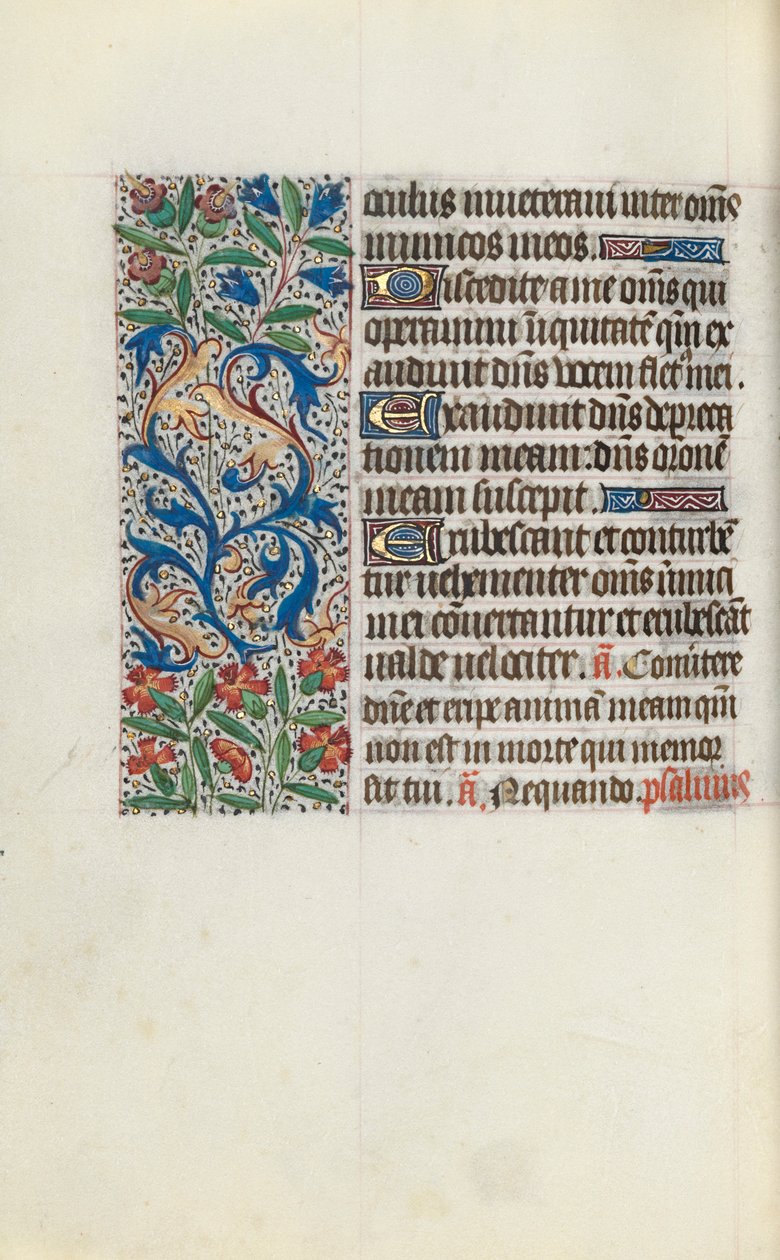 oculus inueteraui inter om̄s
inimicos meos.
Discedite a me om̄s qui
operamini īiquitatē qm̄ ex
audiuit dn̄s vocem flet᷒ mei.
Exaudiuit dn̄s depreca
tionem meam: dn̄s oronē
meam suscepit.
Erubescant et conturbē
tur uehementer om̄s īimici
mei cōuertantur et erubescāt
ualde uelociter. ā. Conūtere
dn̄e et eripe animā meam qm̄
non est in morte qui memor
sit tui. ā. Nequando. psalmus